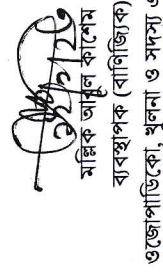 মল্লিক আবুল কাশেম
ব্যবস্থাপক (বাণিজ্যিক)
ওজোপাডিকো, খুলনা ও সদস্য